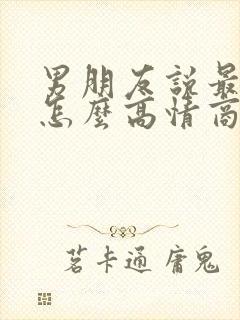 男朋友說最
怎麼高情商
茗卡通 庸鬼